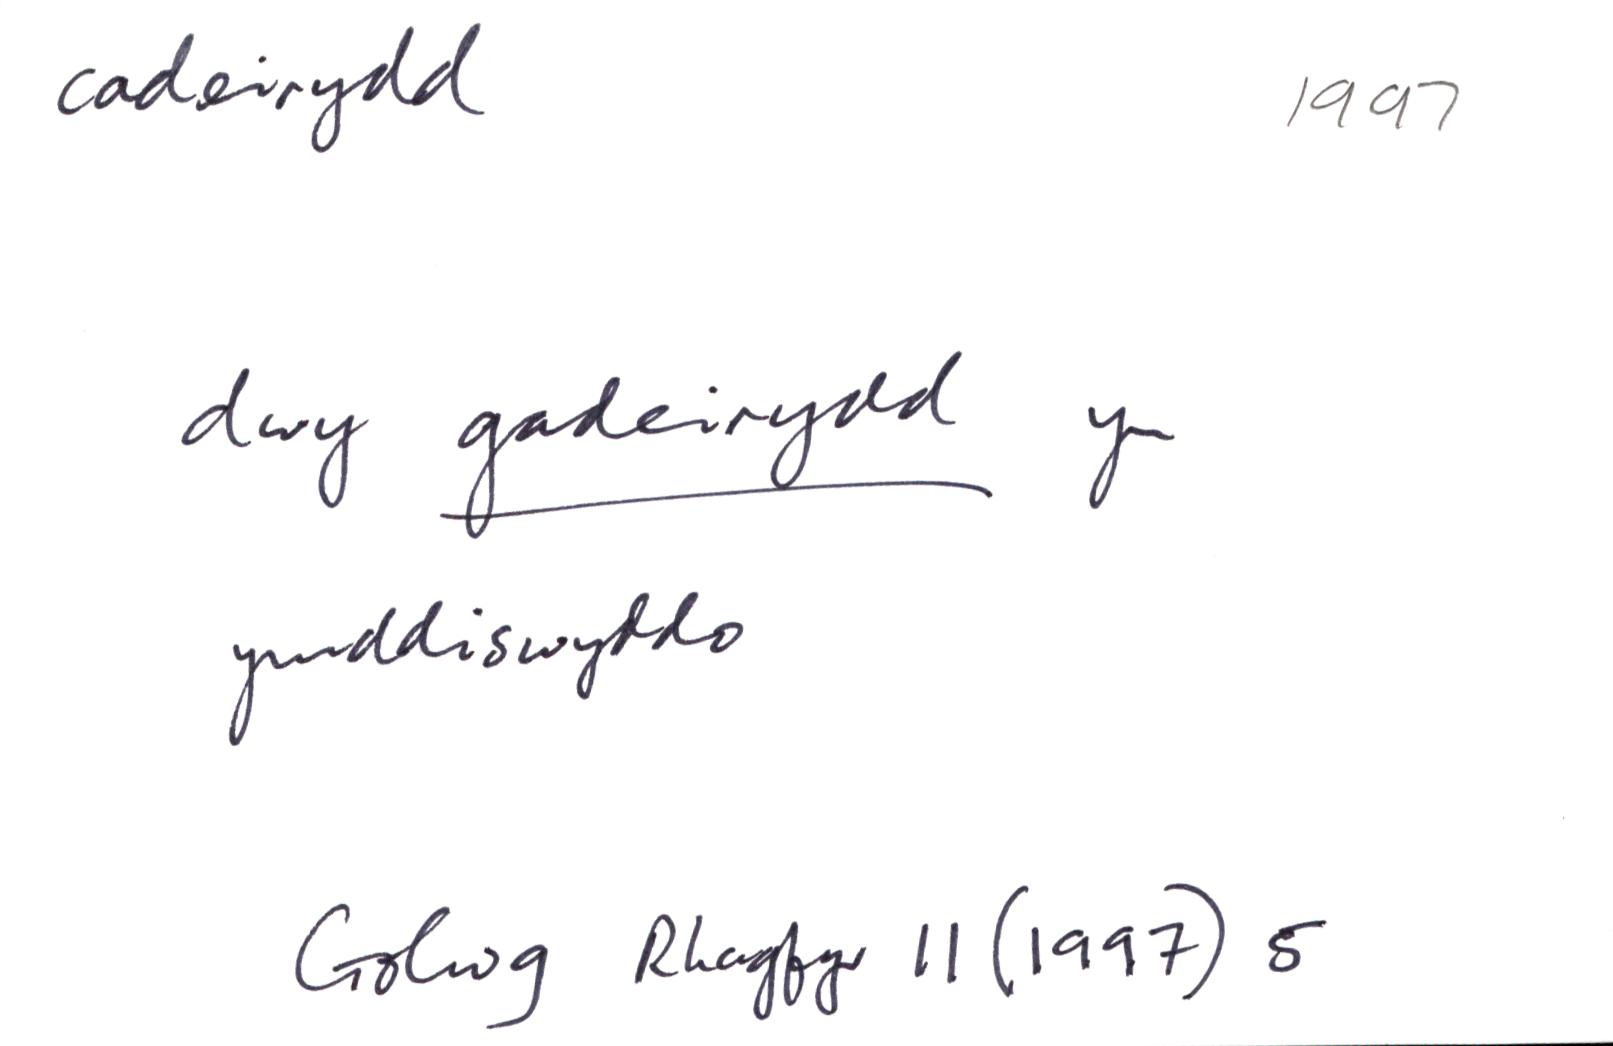 cadeirydd 1997
dwy gadeirydd yn
ymddiswyddo
Golwg Rhagfyr 11 (1997) 5